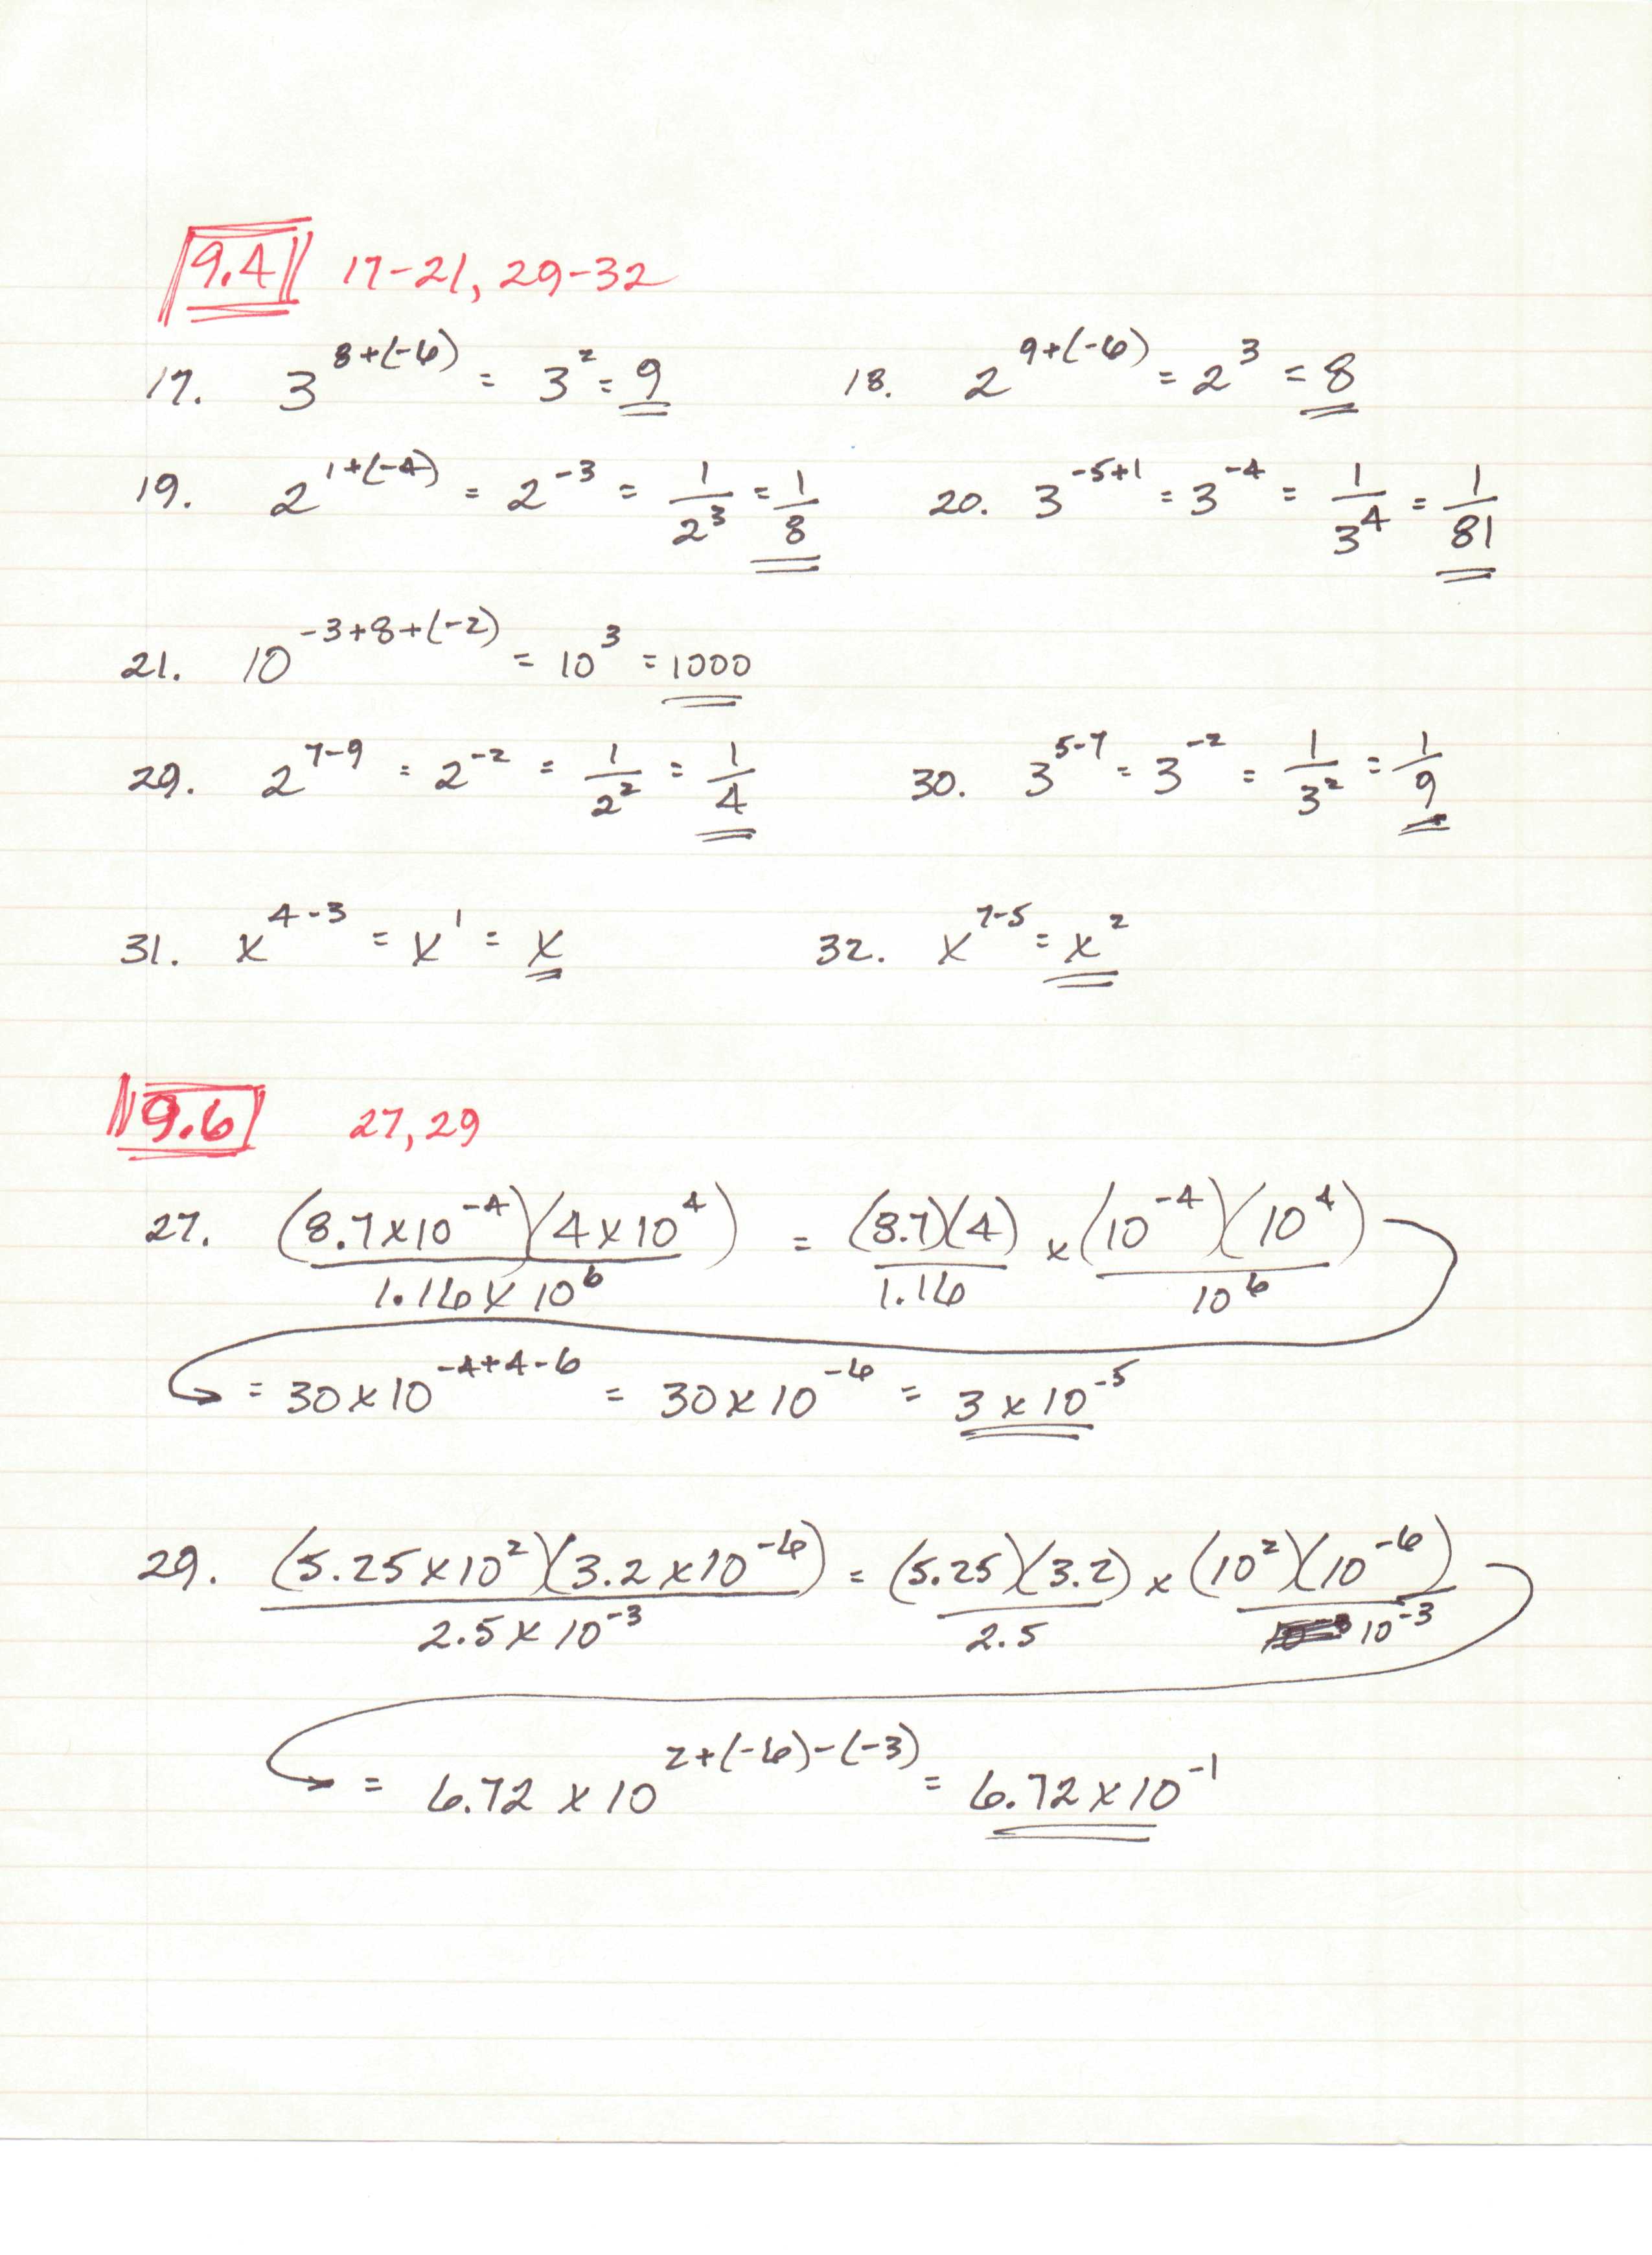 9.4 17-21, 29-32
17. 3^(8+(-6)) = 3^2 = 9 18. 2^(9+(-6)) = 2^3 = 8
19. 2^(1+(-4)) = 2^(-3) = 1/2^3 = 1/8 20. 3^(-5+1) = 3^(-4) = 1/3^4 = 1/81
21. 10^(-3+8+(-2)) = 10^3 = 1000
29. 2^(7-9) = 2^(-2) = 1/2^2 = 1/4 30. 3^(5-7) = 3^(-2) = 1/3^2 = 1/9
31. x^(4-3) = x^1 = x 32. x^(7-5) = x^2
9.6 27, 29
27. (8.7x10^(-4))(4x10^4) / 1.16x10^6 = (8.7)(4)/1.16 x (10^(-4))(10^4)/10^6
= 30x10^(-4+4-6) = 30x10^(-6) = 3x10^(-5)
29. (5.25x10^2)(3.2x10^(-6)) / 2.5x10^(-3) = (5.25)(3.2)/2.5 x (10^2)(10^(-6))/10^(-3)
= 6.72x10^(2+(-6)-(-3)) = 6.72x10^(-1)